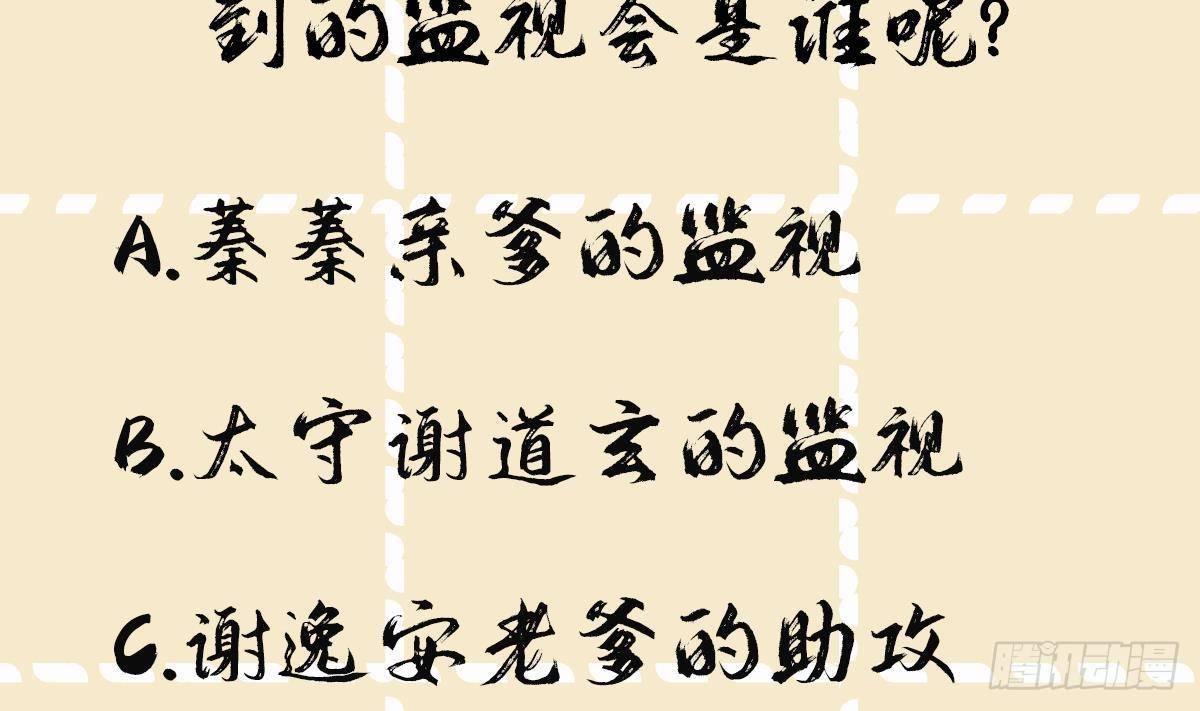 到的监视会是谁呢?
A.蓁蓁亲爹的监视
B.太守谢道玄的监视
C.谢逸安老爹的助攻
腾讯动漫